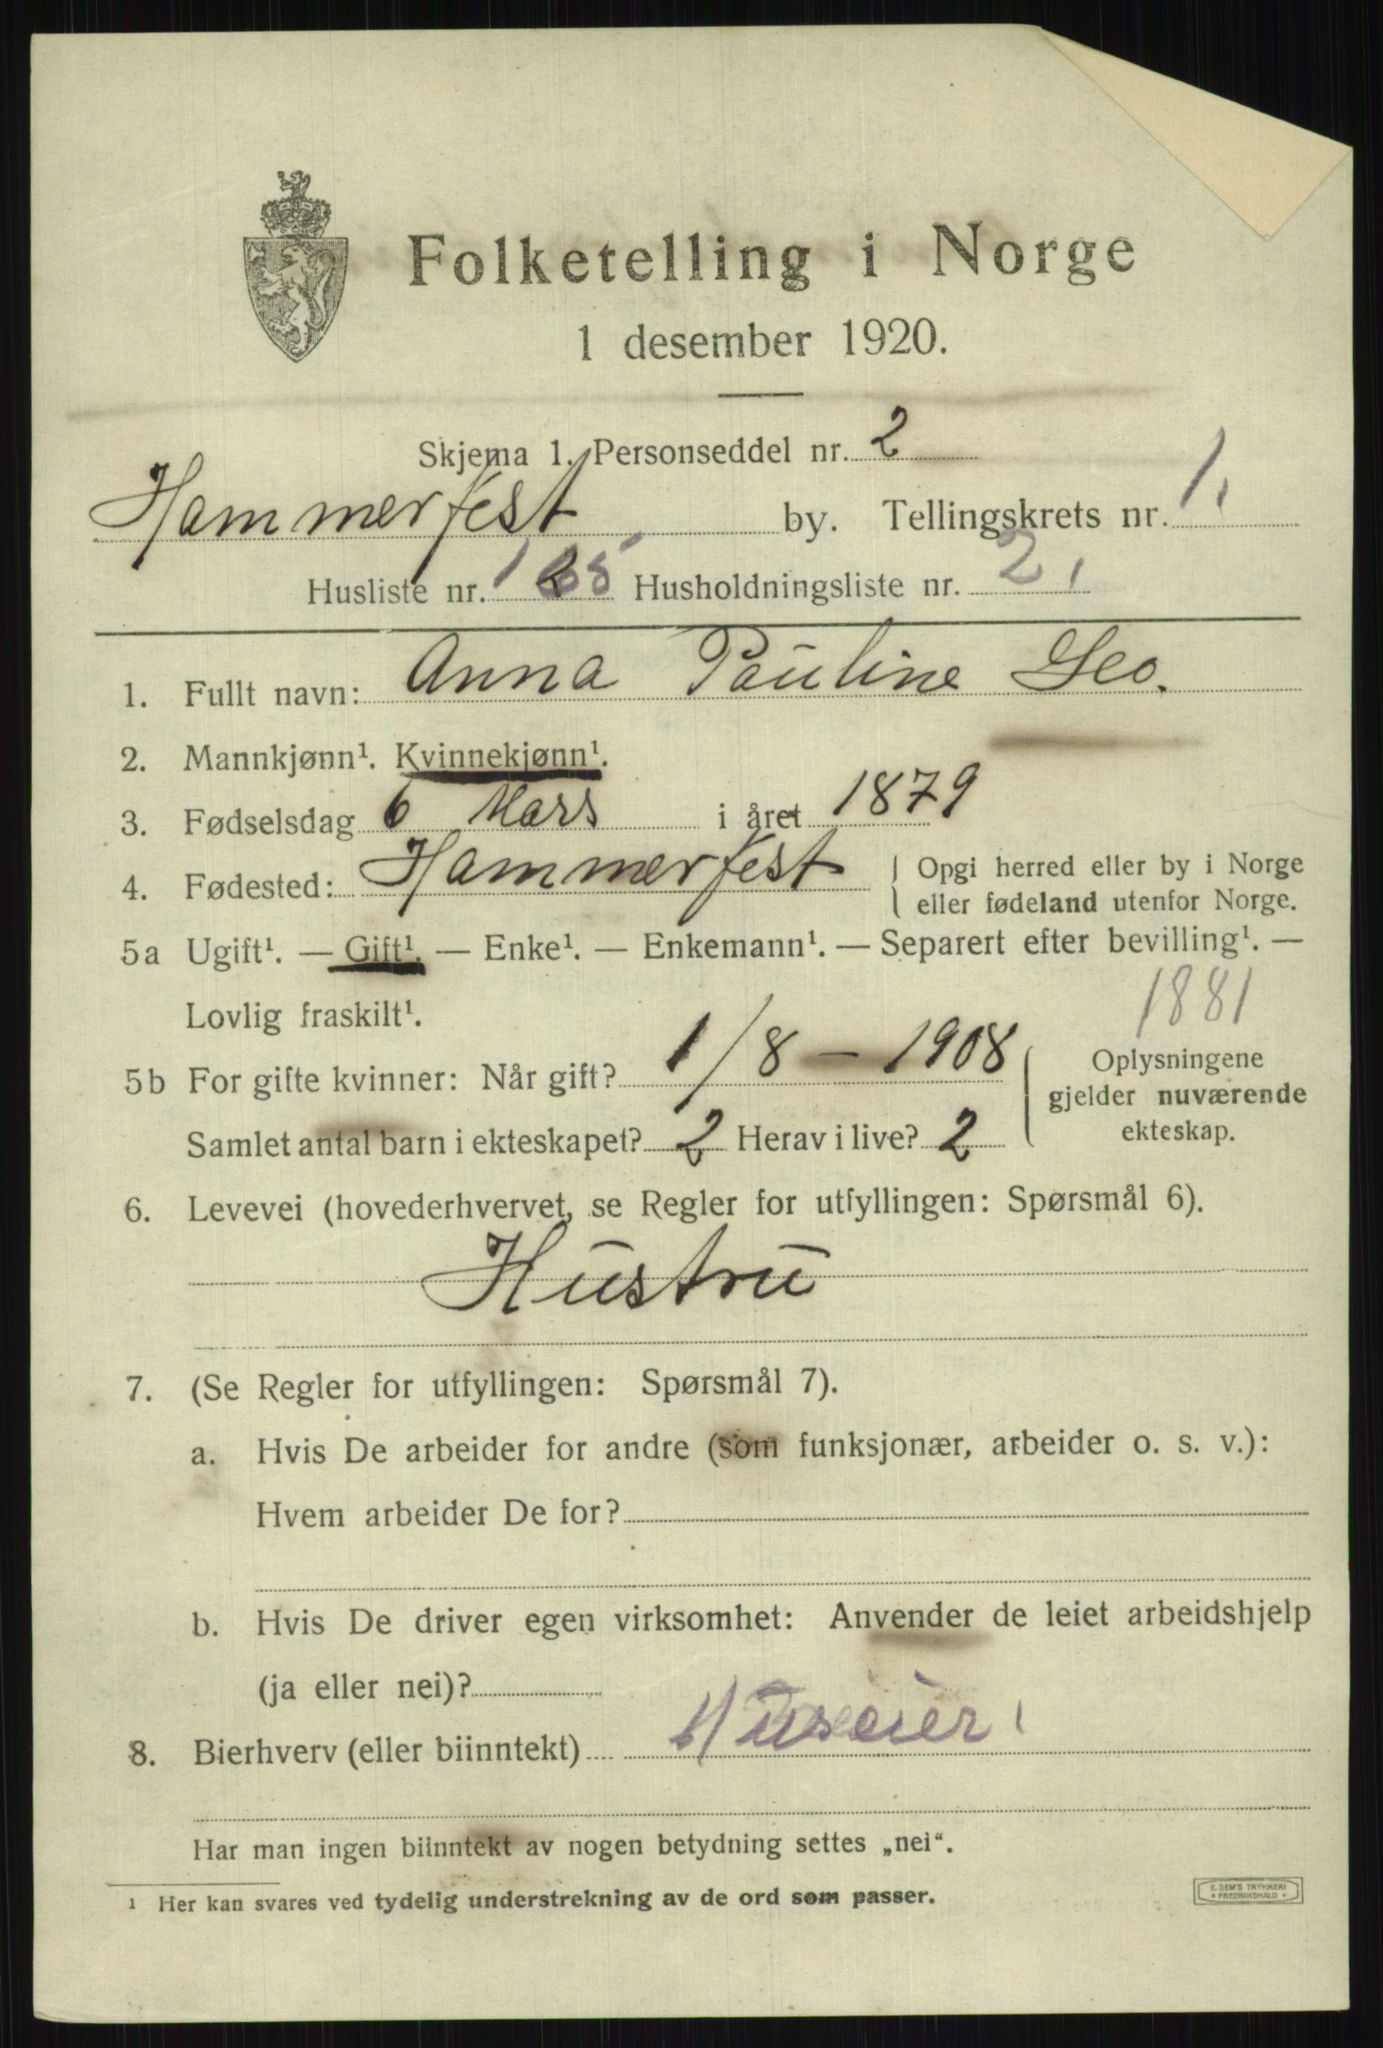 Folketelling i Norge
1 desember 1920.
Skjema 1. Personseddel nr. 2
Hammerfest by. Tellingskrets nr. 1.
Husliste nr. Husholdningsliste nr. 2.
1. Fullt navn: Anna Pauline Leo.
2. Mannkjønn¹. Kvinnekjønn¹.
3. Fødselsdag 6 Mars i året 1879
4. Fødested: Hammerfest Opgi herred eller by i Norge
eller fødeland utenfor Norge.
5a Ugift¹. — Gift¹. — Enke¹. — Enkemann¹. — Separert efter bevilling¹. —
Lovlig fraskilt¹. 1881
5b For gifte kvinner: Når gift? 1/8 – 1908
Samlet antal barn i ekteskapet? 2 Herav i live? 2
Oplysningene
gjelder nuværende
ekteskap.
6. Levevei (hovederhvervet, se Regler for utfyllingen: Spørsmål 6).
Hustru
7. (Se Regler for utfyllingen: Spørsmål 7).
a. Hvis De arbeider for andre (som funksjonær, arbeider o. s. v.):
Hvem arbeider De for?
b. Hvis De driver egen virksomhet: Anvender de leiet arbeidshjelp
(ja eller nei)?
8. Bierhverv (eller biinntekt) Huseier
Har man ingen biinntekt av nogen betydning settes „nei“.
1 Her kan svares ved tydelig understrekning av de ord som passer.
E. SEM'S TRYKKERI
FREDRIKSHALD